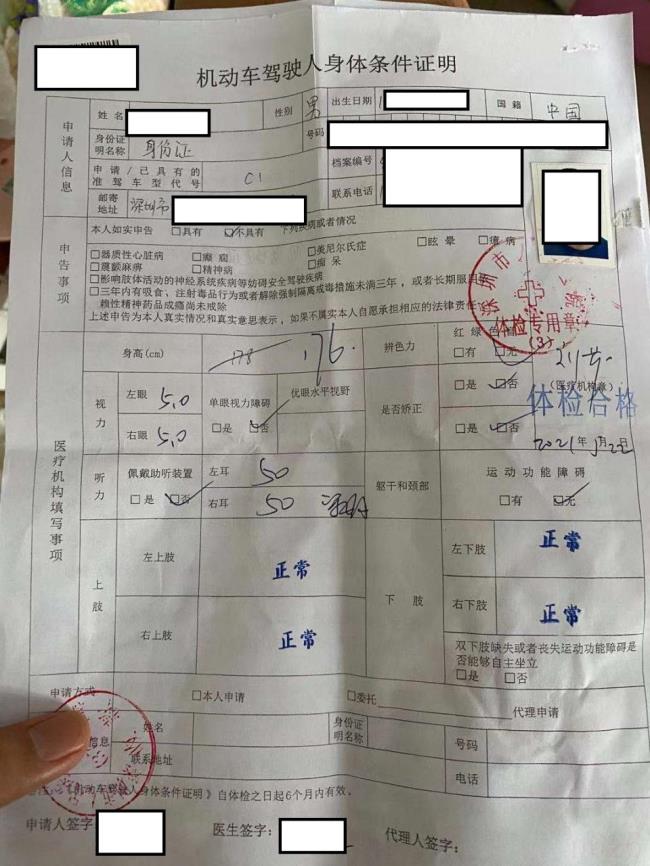 机动车驾驶人身体条件证明
申请人信息
姓名
性别 男
出生日期
国籍 中国
身份证明名称 身份证
号码
申请/已具有的准驾车型代号 C1
档案编号
联系电话
邮寄地址 深圳市
申告事项
本人如实申告 □具有 ☑不具有 下列疾病或者情况
□器质性心脏病 □癫痫 □美尼尔氏症 □眩晕 □癔病
□震颤麻痹 □精神病 □痴呆
□影响肢体活动的神经系统疾病等妨碍安全驾驶疾病
□三年内有吸食、注射毒品行为或者解除强制隔离戒毒措施未满三年，或者长期服用
赖性精神药品成瘾尚未戒除
上述申告为本人真实情况和真实意思表示，如果不属实本人自愿承担相应的法律责任
深圳市
体检专用章
(3)
医疗机构填写事项
身高(cm) 178 176
辨色力
红绿色盲
□有 ☑无
视力
左眼 5.0
右眼 5.0
单眼视力障碍
□是 ☑否
优眼水平视野
是否矫正
□是 ☑否
□是 ☑否
(医疗机构章)
体检合格
2021年
听力
佩戴助听装置
□是 ☑否
左耳 50
右耳 50
躯干和颈部
运动功能障碍
□有 ☑无
上肢
左上肢 正常
右上肢 正常
下肢
左下肢 正常
右下肢 正常
双下肢缺失或者丧失运动功能障碍是否能够自主坐立
□是 □否
申请方式
□本人申请
□委托 代理申请
信息
姓名
身份证明名称
号码
联系地址
电话
《机动车驾驶人身体条件证明》自体检之日起6个月内有效。
申请人签字
医生签字：
代理人签字：